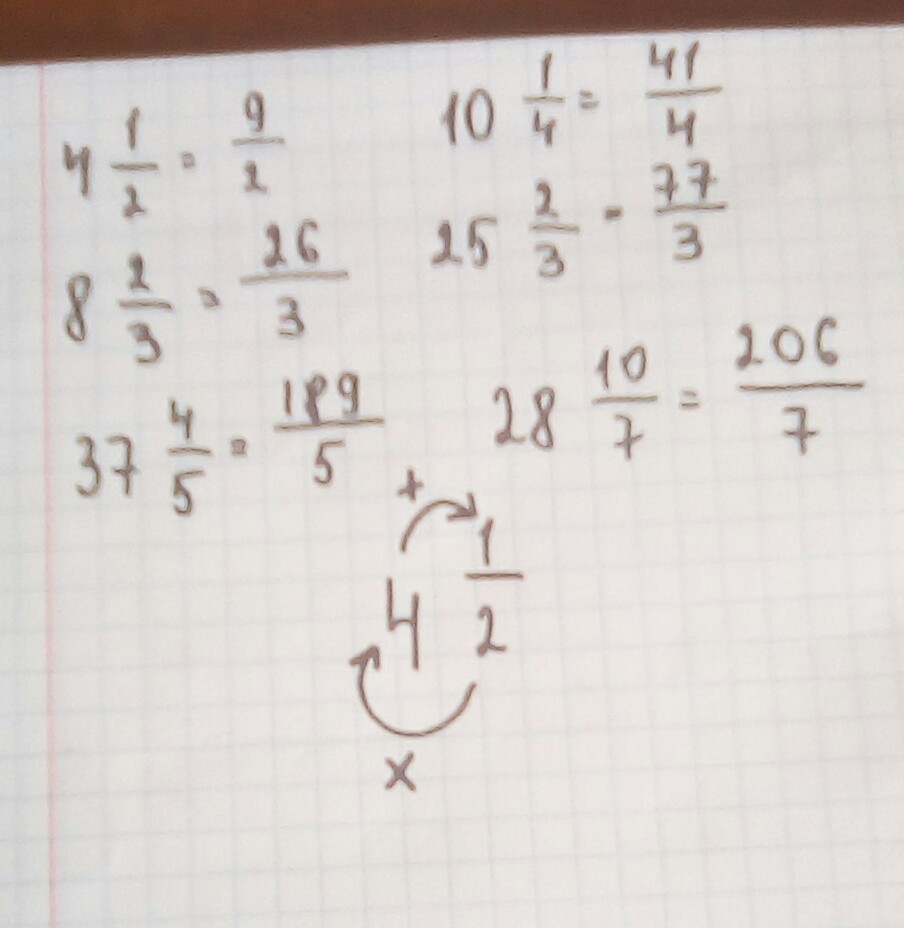 4 1/2 = 9/2
10 1/4 = 41/4
8 2/3 = 26/3
25 2/3 = 77/3
37 4/5 = 189/5
28 10/7 = 206/7
+
4 1/2
x